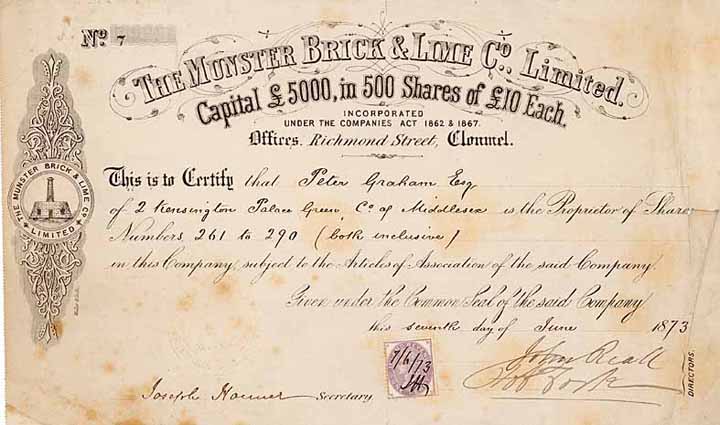 No. 7
THE MUNSTER BRICK & LIME Co., Limited.
Capital £5000, in 500 Shares of £10 Each.
INCORPORATED
UNDER THE COMPANIES ACT 1862 & 1867.
Offices. Richmond Street, Clonmel.
THE MUNSTER BRICK & LIME Co
LIMITED
This is to Certify that Peter Graham Esq
of 2 Kensington Palace Green, Co. of Middlesex is the Proprietor of Share
Numbers 261 to 290 (both inclusive)
in this Company, subject to the Articles of Association of the said Company.
Given under the Common Seal of the said Company
this seventh day of June 1873
7/6/73
JH
John
DIRECTORS.
Joseph Secretary